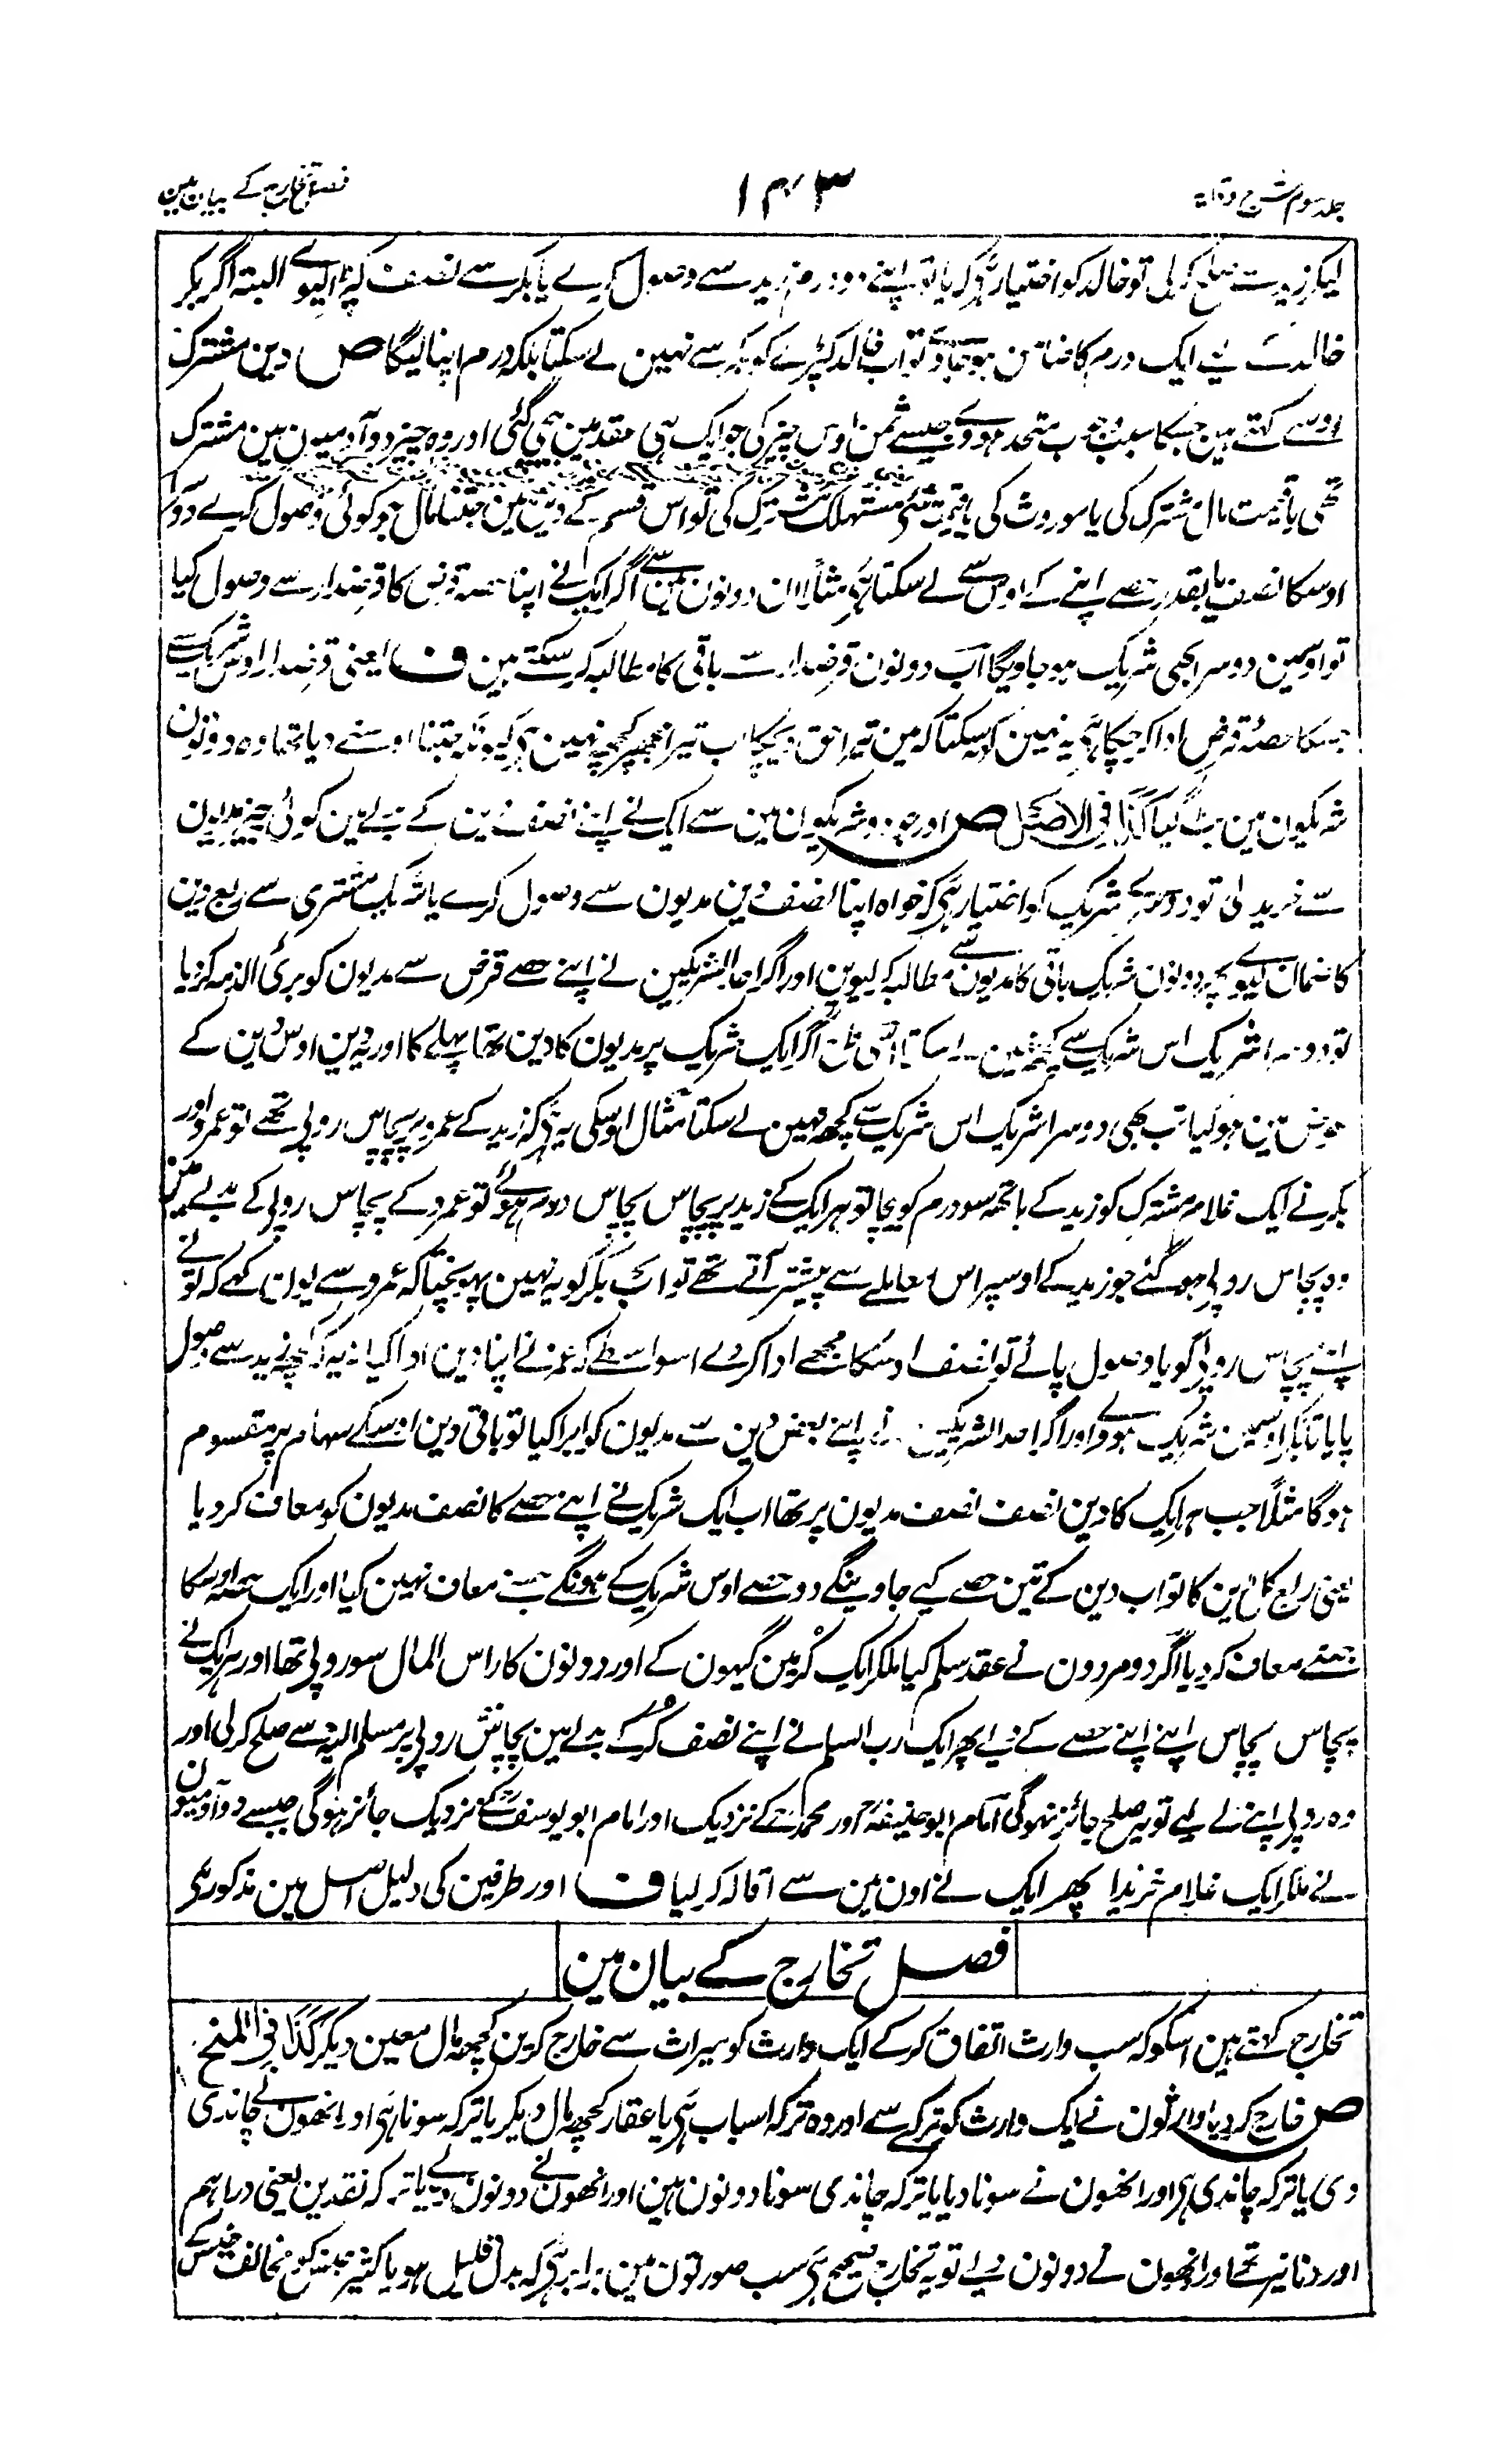 جلد سوم شرح وقایہ
۱۴۳
فصل تخارج کے بیان مین
لیکر زید سے صلح کر لی تو خالد کو اختیار ہی کہ یا تو اپنے دو درم زید سے وصول کرے یا بکر سے نصف کپڑا لیوے البتہ اگر بکر
خالد کے لیے ایک درم کا ضامن ہو جاوے تو اب خالد کپڑے کو بکر سے نہین لے سکتا بلکہ درم اپنا لیگا ص دین مشترک
اوسے کہتے ہین جسکا سبب وجوب متحد ہووے جیسے ثمن اوس چیز کی جو ایک ہی عقد مین بیچی گئی اور وہ چیز دو آدمیون مین مشترک
تھی یا قیمت مال مشترک کی یا موروث کی یا قیمت شئی مستہلک مشترک کی تو اس قسم کے دین مین جتنا مال جو کوئی وصول کرے دوسرا
اوسکا نصف یا بقدر حصے اپنے کے اوس سے لے سکتا ہی مثلاً ان دونون مین سے اگر ایک نے اپنا حصہ قرض کا قرضدار سے وصول کیا
تو اوسمین دوسرا بھی شریک ہو جاویگا اب دونون قرضدار سے باقی کا مطالبہ کر سکتے ہین ف یعنی قرضدار اوس شریک سے
جسکا حصہ قرض ادا کر چکا ہی یہ نہین کہ سکتا کہ مین تیرا حق دیچکا اب تیرا مجھپر کچھ نہین ہی کیونکہ جتنا اوسنے دیا تھا وہ دونون
شریکون مین بٹ گیا کذا فی الاصل ص اور جو دو شریکون مین سے ایک نے اپنے نصف دین کے بدلے مین کوئی چیز مدیون
سے خرید لی تو دوسرے شریک کو اختیار ہی کہ خواہ اپنا نصف دین مدیون سے وصول کرے یا شریک مشتری سے ربع دین
کا ضمان لیوے پھر دونون شریک باقی کا مدیون سے مطالبہ کر لیوین اور اگر احد الشریکین نے اپنے حصے قرض سے مدیون کو بری الذمہ کر دیا
تو دوسرا شریک اس شریک سے کچھ نہین لے سکتا اسی طرح اگر ایک شریک پر مدیون کا دین تھا پہلے کا اور یہ دین اوس دین کے
عوض مین ہو لیا تب بھی دوسرا شریک اس شریک سے کچھ نہین لے سکتا مثال اوسکی یہ ہی کہ زید کے عمرو پر پچاس روپی تھے تو عمرو اور
بکر نے ایک غلام مشترک کو زید کے ہاتھ سو درم کو بیچا تو ہر ایک کے زید پر پچاس پچاس درم ہوئے تو عمرو کے پچاس روپی کے بدلے مین
وہ پچاس روپی ہو گئے جو زید کے اوسپر اس معاملے سے پیشتر آتے تھے تو اب بکر کو یہ نہین پہونچتا کہ عمرو سے یون کہے کہ تو نے
اپنے پچاس روپی گویا وصول پائے تو نصف اوسکا مجھے ادا کر دے اسواسطے کہ عمرو نے اپنا دین ادا کیا نہ یہ کہ کچھ زید سے وصول
پایا تا بکر اوسمین شریک ہووے اور اگر احد الشریکین نے اپنے بعض دین سے مدیون کو ابرا کیا تو باقی دین اونکے سہام پر مقسوم
ہوگا مثلاً جب ہر ایک کا دین نصف نصف مدیون پر تھا اب ایک شریک نے اپنے حصے کا نصف مدیون کو معاف کر دیا
یعنی ربع کل دین کا تو اب دین کے تین حصے کیے جاوینگے دو حصے اوس شریک کے ہونگے جسنے معاف نہین کیا اور ایک حصہ اوسکا
جسنے معاف کر دیا اگر دو مردون نے عقد سلم کیا ملکر ایک کُر مین گیہون کے اور دونون کا راس المال سو روپی تھا اور ہر ایک نے
پچاس پچاس اپنے اپنے حصے کے دیے پھر ایک رب السلم نے اپنے نصف کُر کے بدلے مین پچاس روپی پر مسلم الیہ سے صلح کر لی اور
وہ روپی اپنے لے لیے تو یہ صلح جائز نہوگی امام ابو حنیفہ اور محمد کے نزدیک اور امام ابو یوسف کے نزدیک جائز ہوگی جیسے دو آدمیون
نے ملکر ایک غلام خریدا پھر ایک نے اون مین سے اقالہ کر لیا ف اور طرفین کی دلیل اصل مین مذکور ہی
فصل تخارج کے بیان مین
تخارج کہتے ہین اسکو کہ سب وارث اتفاق کر کے ایک وارث کو میراث سے خارج کرین کچھ مال معین دیکر کذا فی المنح
ص خارج کر دیا وارثون نے ایک وارث کو ترکے سے اور وہ ترکہ اسباب ہی یا عقار کچھ مال دیکر یا ترکہ سونا ہی اور انھون نے چاندی
دی یا ترکہ چاندی ہی اور انھون نے سونا دیا یا ترکہ چاندی سونا دونون ہین اور انھون نے دونون دیے یا ترکہ نقدین یعنی دراہم
اور دنانیر تھے اور انھون نے دونون دیے تو یہ تخارج صحیح ہی سب صورتون مین برابر ہی کہ بدل قلیل ہو یا کثیر جنس کو مخالف جنس کے